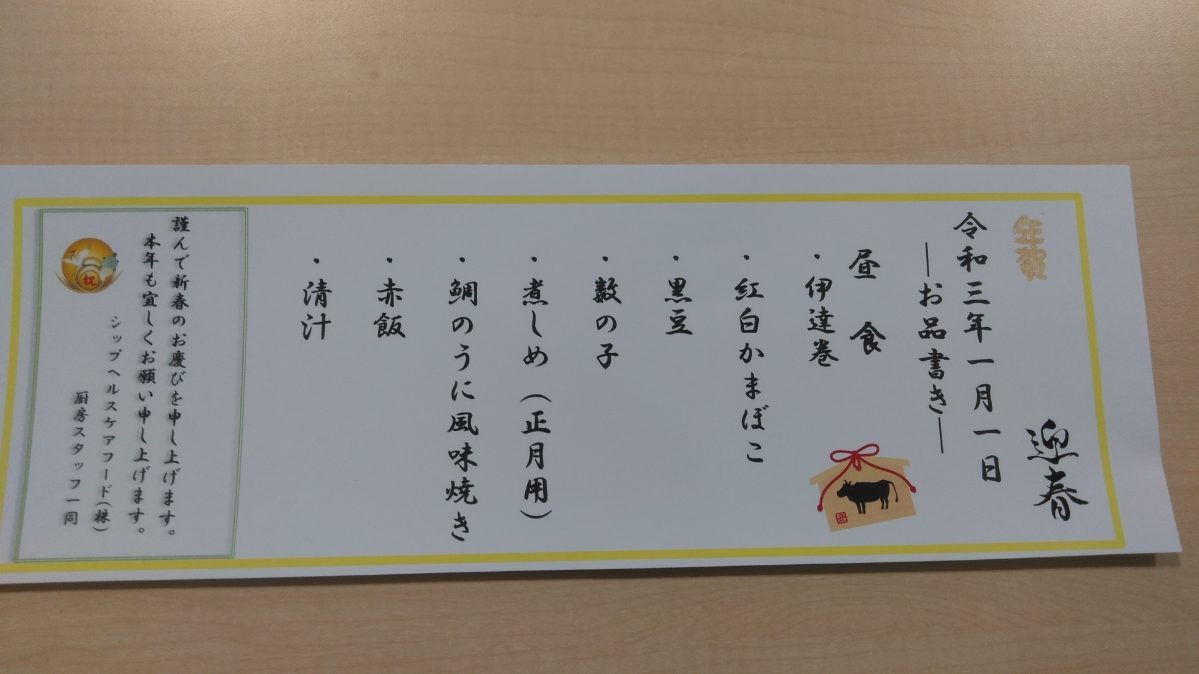 年賀
迎春
令和三年一月一日
―お品書き―
昼 食
・伊達巻
・紅白かまぼこ
・黒豆
・数の子
・煮しめ（正月用）
・鯛のうに風味焼き
・赤飯
・清汁
謹んで新春のお慶びを申し上げます。
本年も宜しくお願い申し上げます。
シップヘルスケアフード（株）
厨房スタッフ一同
祝